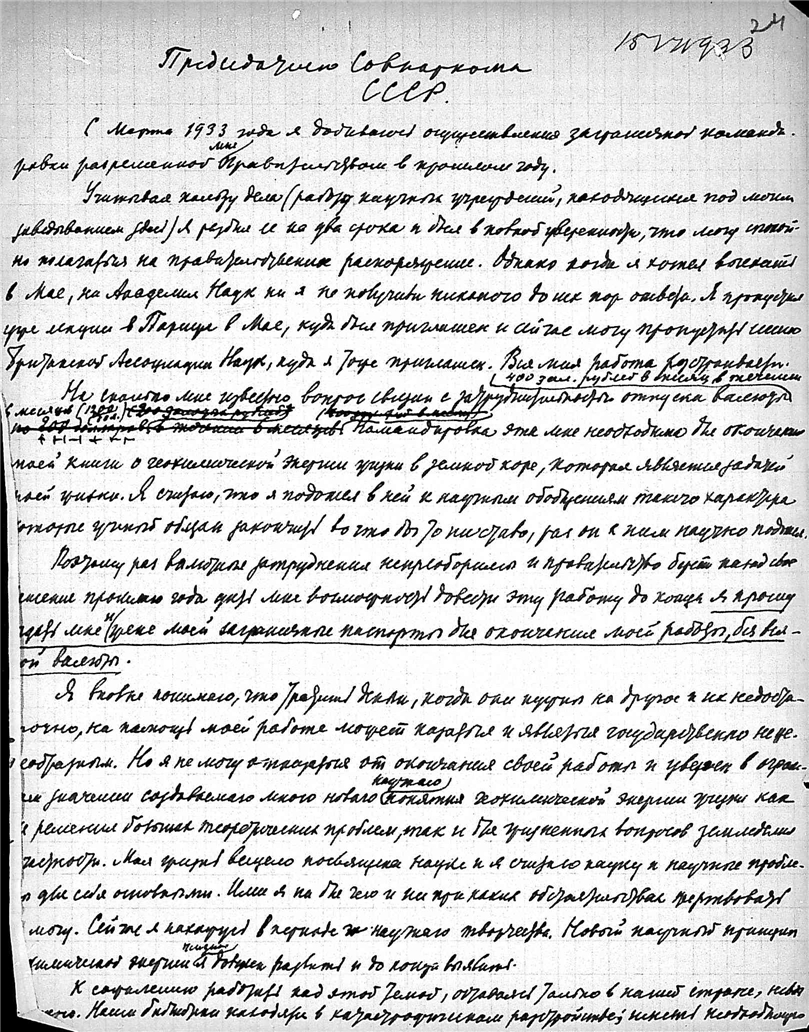 24
15 VI 1933
Председателю Совнаркома
СССР.
С Марта 1933 года я добиваюсь осуществления заграничной команди-
ровки разрешенной мне Правительством в прошлом году.
Учитывая пользу дела (работу научных учреждений, находящихся под моим
заведыванием здесь) я разбил ее на два срока и был в полной уверенности, что могу спокой-
но полагаться на правительственное распоряжение. Однако когда я хотел выехать
в Мае, ни Академия Наук ни я не получили никакого до сих пор ответа. Я пропустил
уже лекции в Париже в Мае, куда был приглашен и сейчас могу пропустить
Британской Ассоциации Наук, куда я тоже приглашен. Вся моя работа расстраивается.
400 зол. рублей в месяц в течении
На сколько мне известно вопрос связан с затруднительностью отпуска валюты
6 месяцев
Командировка эта мне необходима для окончания
моей книги о геохимической энергии жизни в земной коре, которая является задачей
моей жизни. Я считаю, что я подошел в ней к научным обобщениям такого характера
которые ученый обязан закончить во что бы то ни стало, раз он к ним научно подошел.
Поэтому раз валютные затруднения непреоборимы и правительство
прошлого года дать мне возможность довести эту работу до конца я прошу
дать мне и жене моей заграничные паспорты для окончания моей работы, без вся-
кой валюты.
Я вполне понимаю, что тратить деньги, когда они нужны на другое и их недоста-
точно, на помощь моей работе может казаться и является государственно неце-
лесообразным. Но я не могу отказаться от окончания своей работы и уверен в огром-
ном значении создаваемого мною нового научного понятия геохимической энергии жизни как
для решения больших теоретических проблем, так и для жизненных вопросов земледелия
в частности. Моя жизнь всецело посвящена науке и я считаю науку и научные пробле-
мы для себя основными. Ими я ни для чего и ни при каких обстоятельствах жертвовать
не могу. Сейчас я нахожусь в периоде научного творчества. Новый научный принцип
геохимической энергии жизни я должен развить и до конца выявить.
К сожалению работать над этой темой, оставаясь только в нашей стране, невоз-
можно. Наши библиотеки находятся в катастрофическом расстройстве;